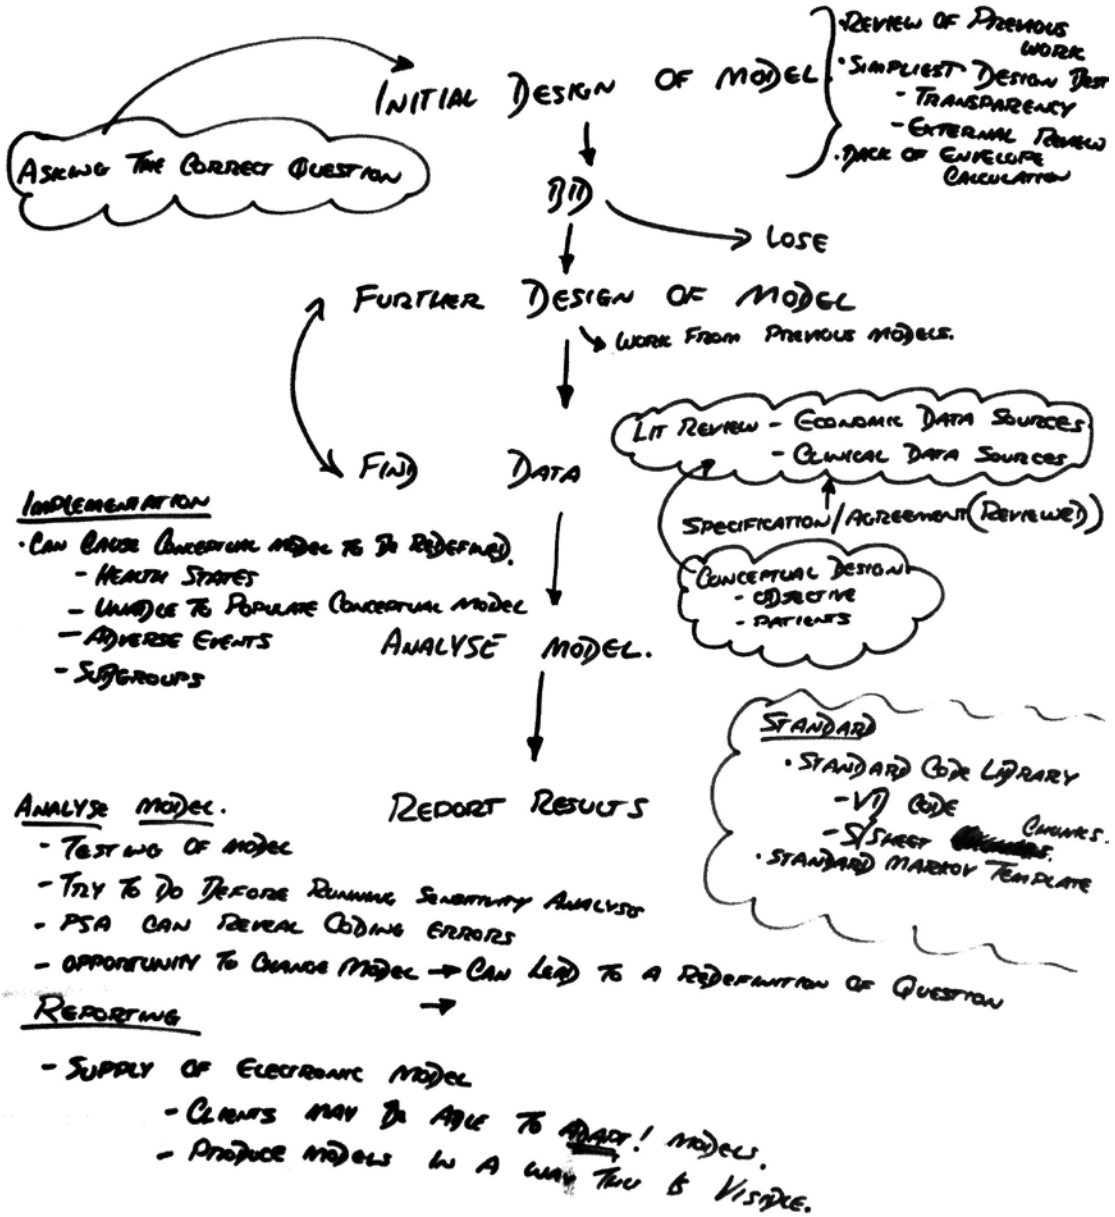 INITIAL DESIGN OF MODEL
· REVIEW OF PREVIOUS
WORK
· SIMPLIEST DESIGN BEST
- TRANSPARENCY
- EXTERNAL REVIEW
· BACK OF ENVELOPE
CALCULATION
ASKING THE CORRECT QUESTION
BID
LOSE
FURTHER DESIGN OF MODEL
WORK FROM PREVIOUS MODELS.
LIT REVIEW - ECONOMIC DATA SOURCES
- CLINICAL DATA SOURCES
FIND DATA
SPECIFICATION/AGREEMENT (REVIEWED)
CONCEPTUAL DESIGN
- OBJECTIVE
- PATIENTS
IMPLEMENTATION
· CAN CAUSE CONCEPTUAL MODEL TO BE REDEFINED.
- HEALTH STATES
- UNABLE TO POPULATE CONCEPTUAL MODEL
- ADVERSE EVENTS
- SUBGROUPS
ANALYSE MODEL.
STANDARD
· STANDARD CODE LIBRARY
- VB CODE
- S/SHEET CHUNKS.
· STANDARD MARKOV TEMPLATE
REPORT RESULTS
ANALYSE MODEL.
- TESTING OF MODEL
- TRY TO DO BEFORE RUNNING SENSITIVITY ANALYSIS
- PSA CAN REVEAL CODING ERRORS
- OPPORTUNITY TO CHANGE MODEL → CAN LEAD TO A REDEFINITION OF QUESTION
→
REPORTING
- SUPPLY OF ELECTRONIC MODEL
- CLIENTS MAY BE ABLE TO ADAPT! MODELS.
- PRODUCE MODELS IN A WAY THIS IS VISIBLE.